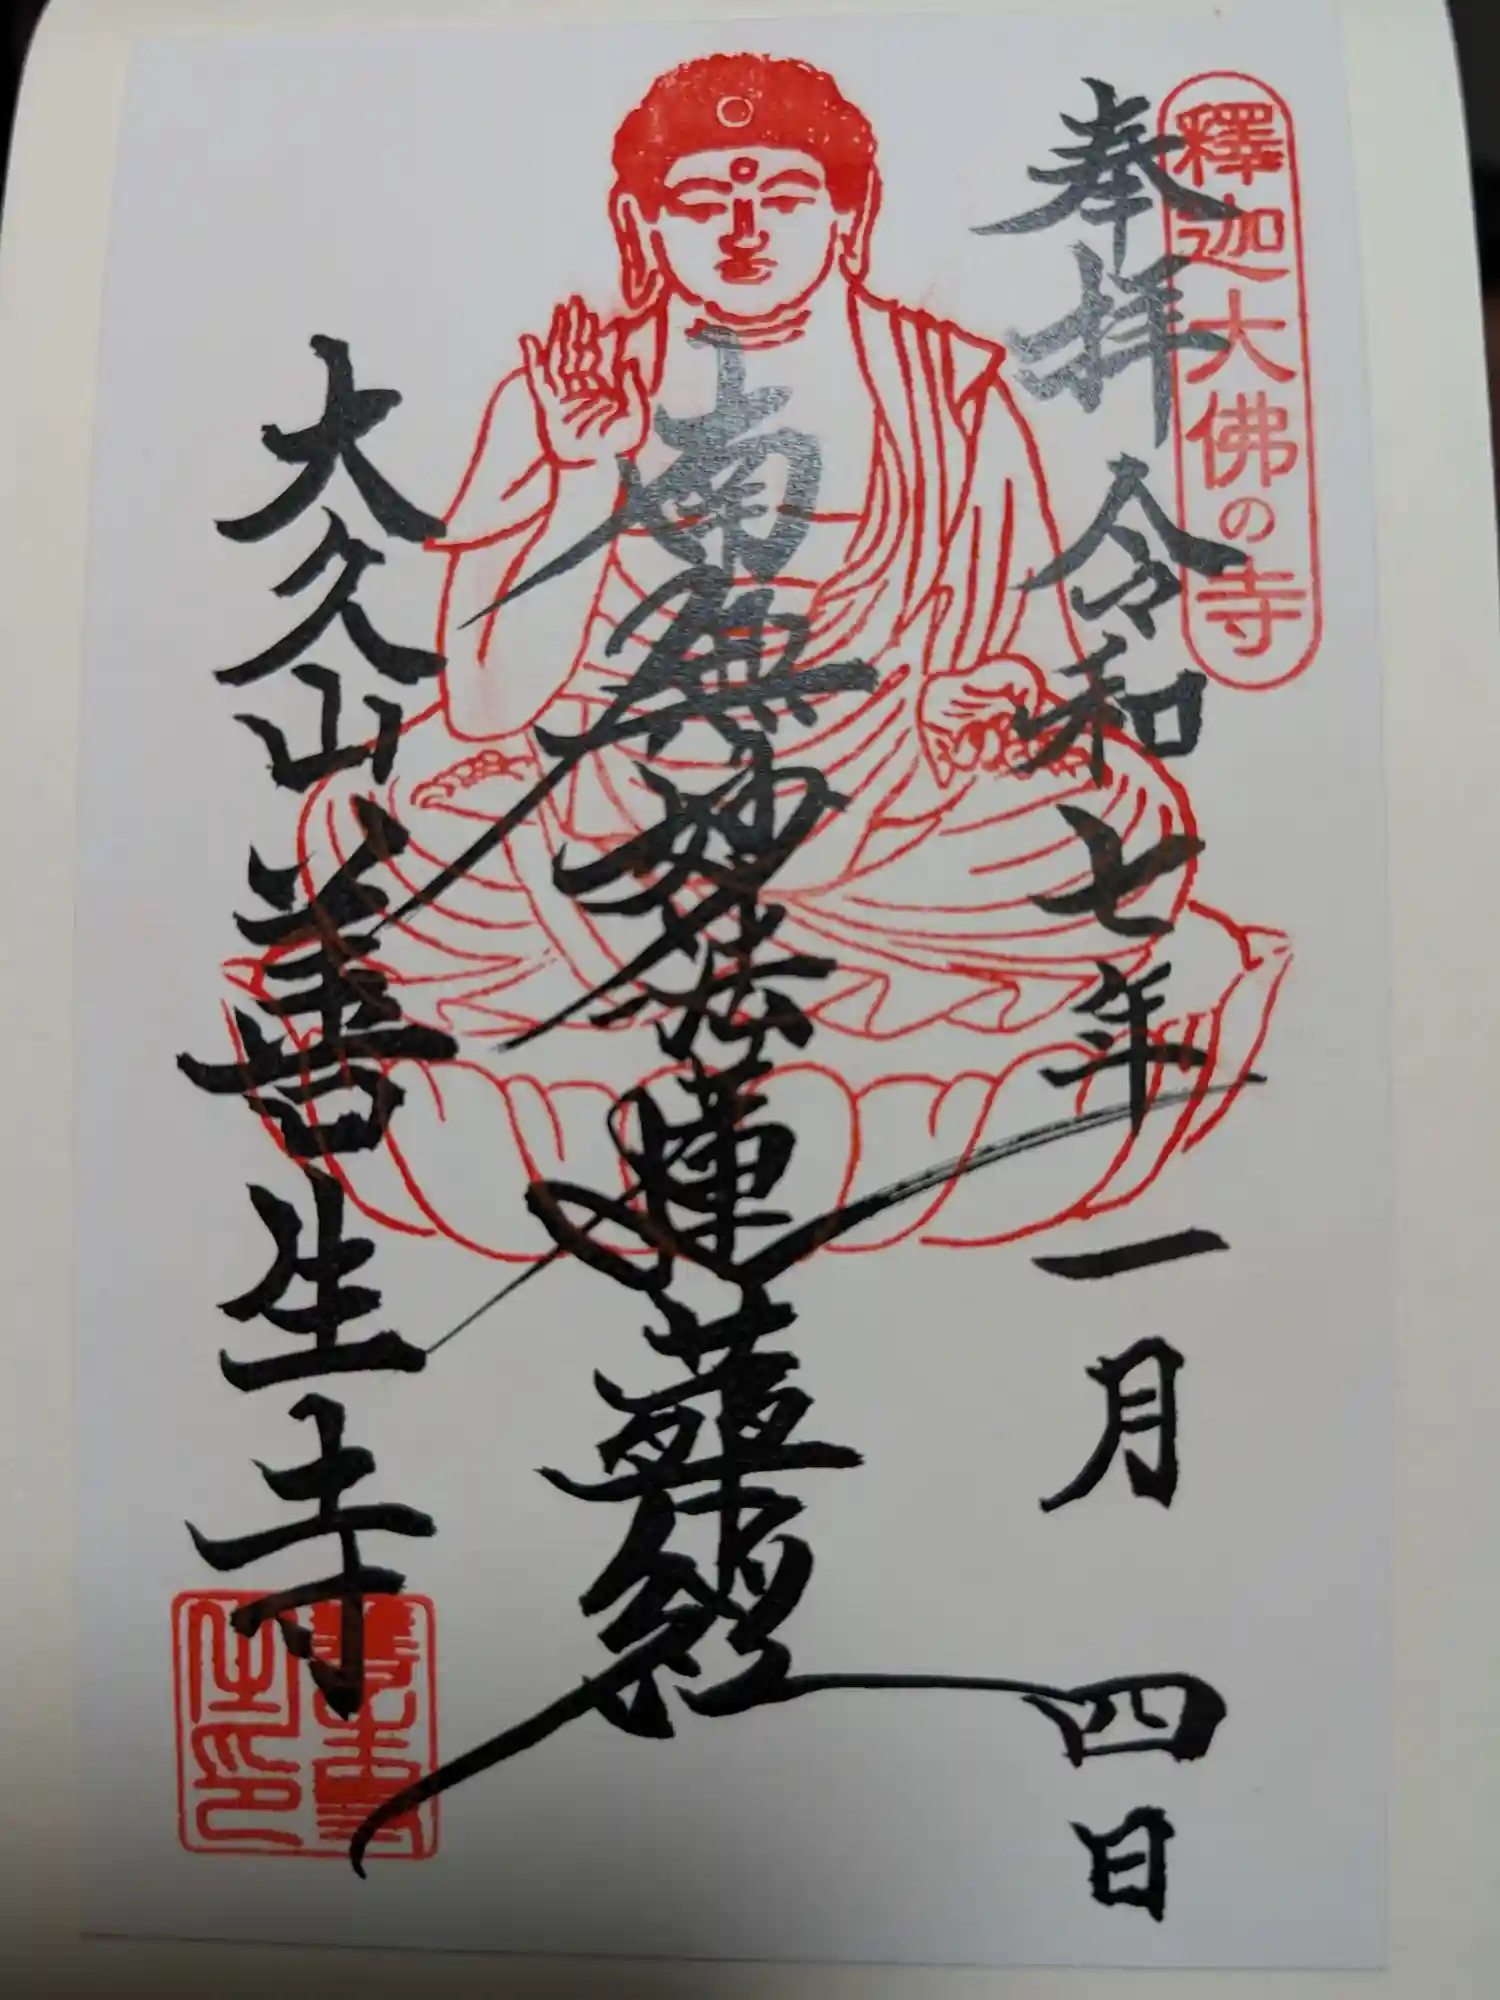 釋迦大佛の寺
奉拝 令和七年 一月 四日
南無妙法蓮華経
大久山 善生寺